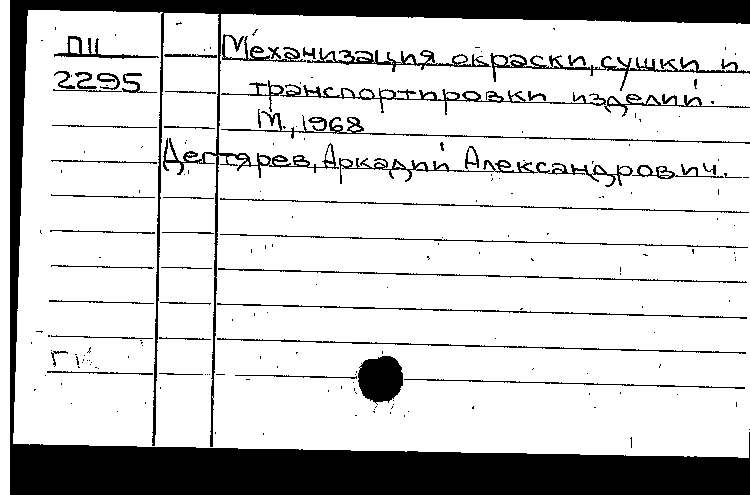 П11 Механизация окраски, сушки и
2295 транспортировки изделий.
М., 1968
Дегтярев, Аркадий Александрович.
ГК